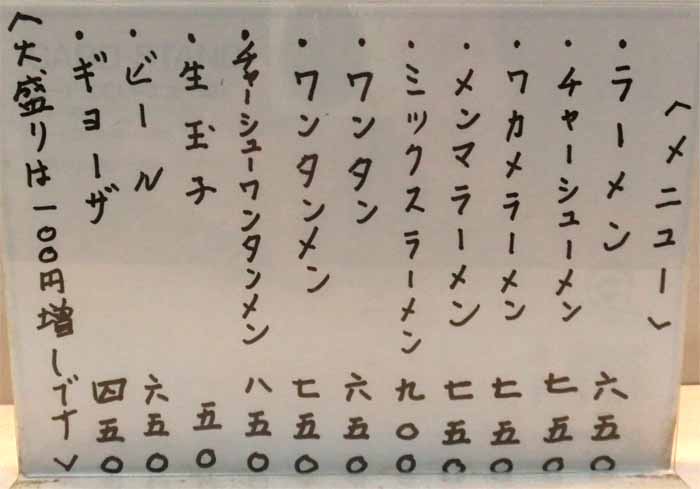 〈メニュー〉
・ラーメン 六五〇
・チャーシューメン 七五〇
・ワカメラーメン 七五〇
・メンマラーメン 七五〇
・ミックスラーメン 九〇〇
・ワンタン 六五〇
・ワンタンメン 七五〇
・チャーシューワンタンメン 八五〇
・生玉子 五〇
・ビール 六五〇
・ギョーザ 四五〇
〈大盛りは一〇〇円増しです〉